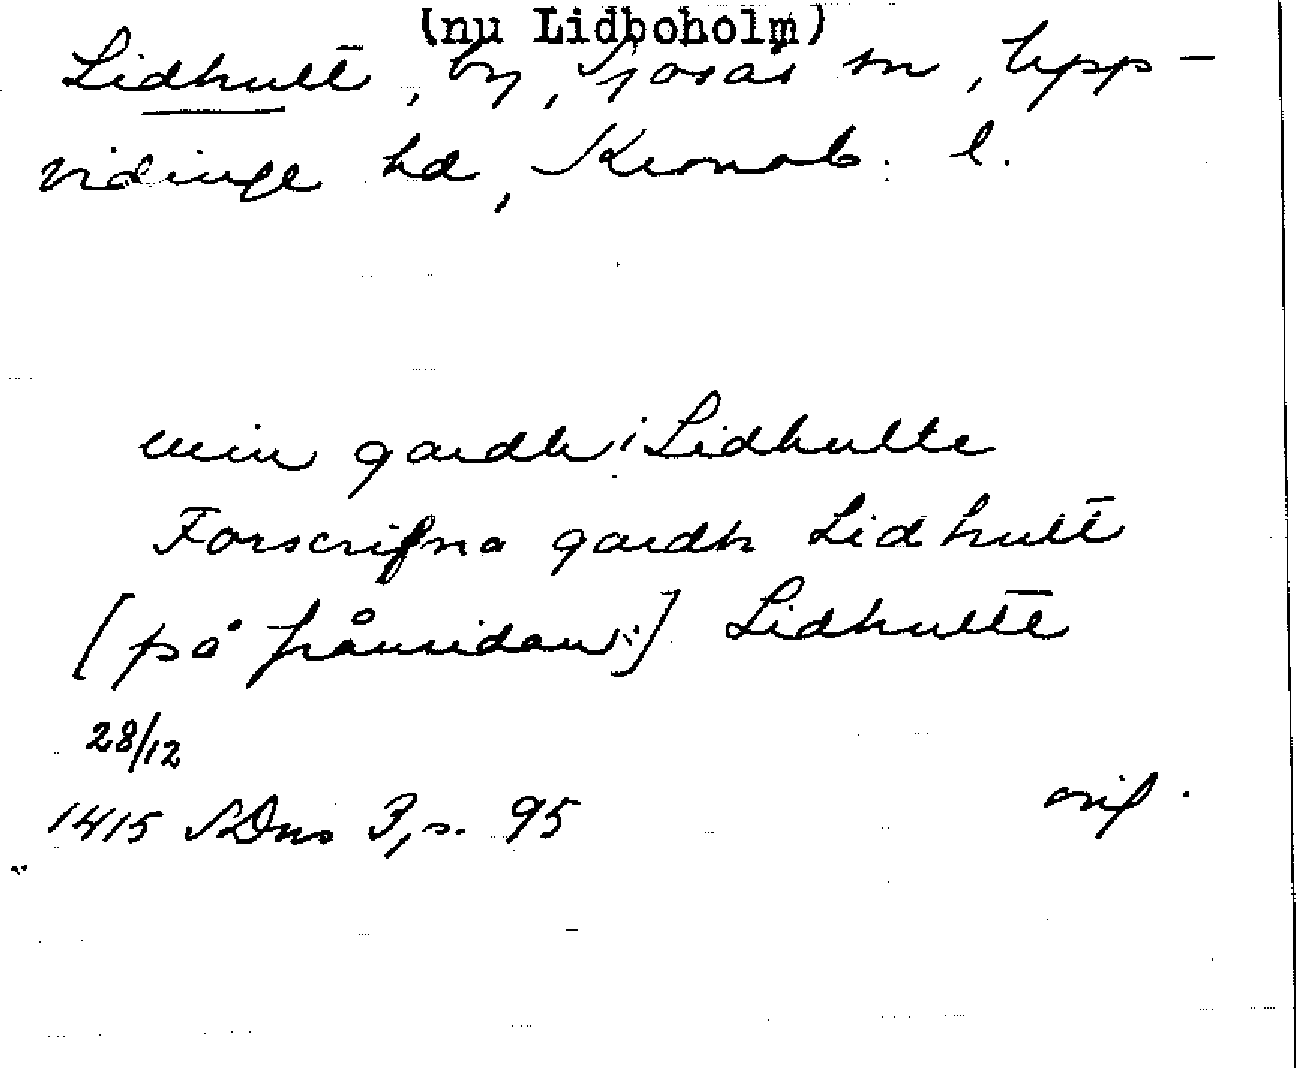 (nu Lidboholm)
Lidhult, by, Sjösås sn, Upp-
vidinge hd, Kronob. l.
min gardh i Lidhulte
Forscrifna gardh Lidhult
[på frånsidan:] Lidhulte
28/12
1415 SDns 3, s. 95 orig.